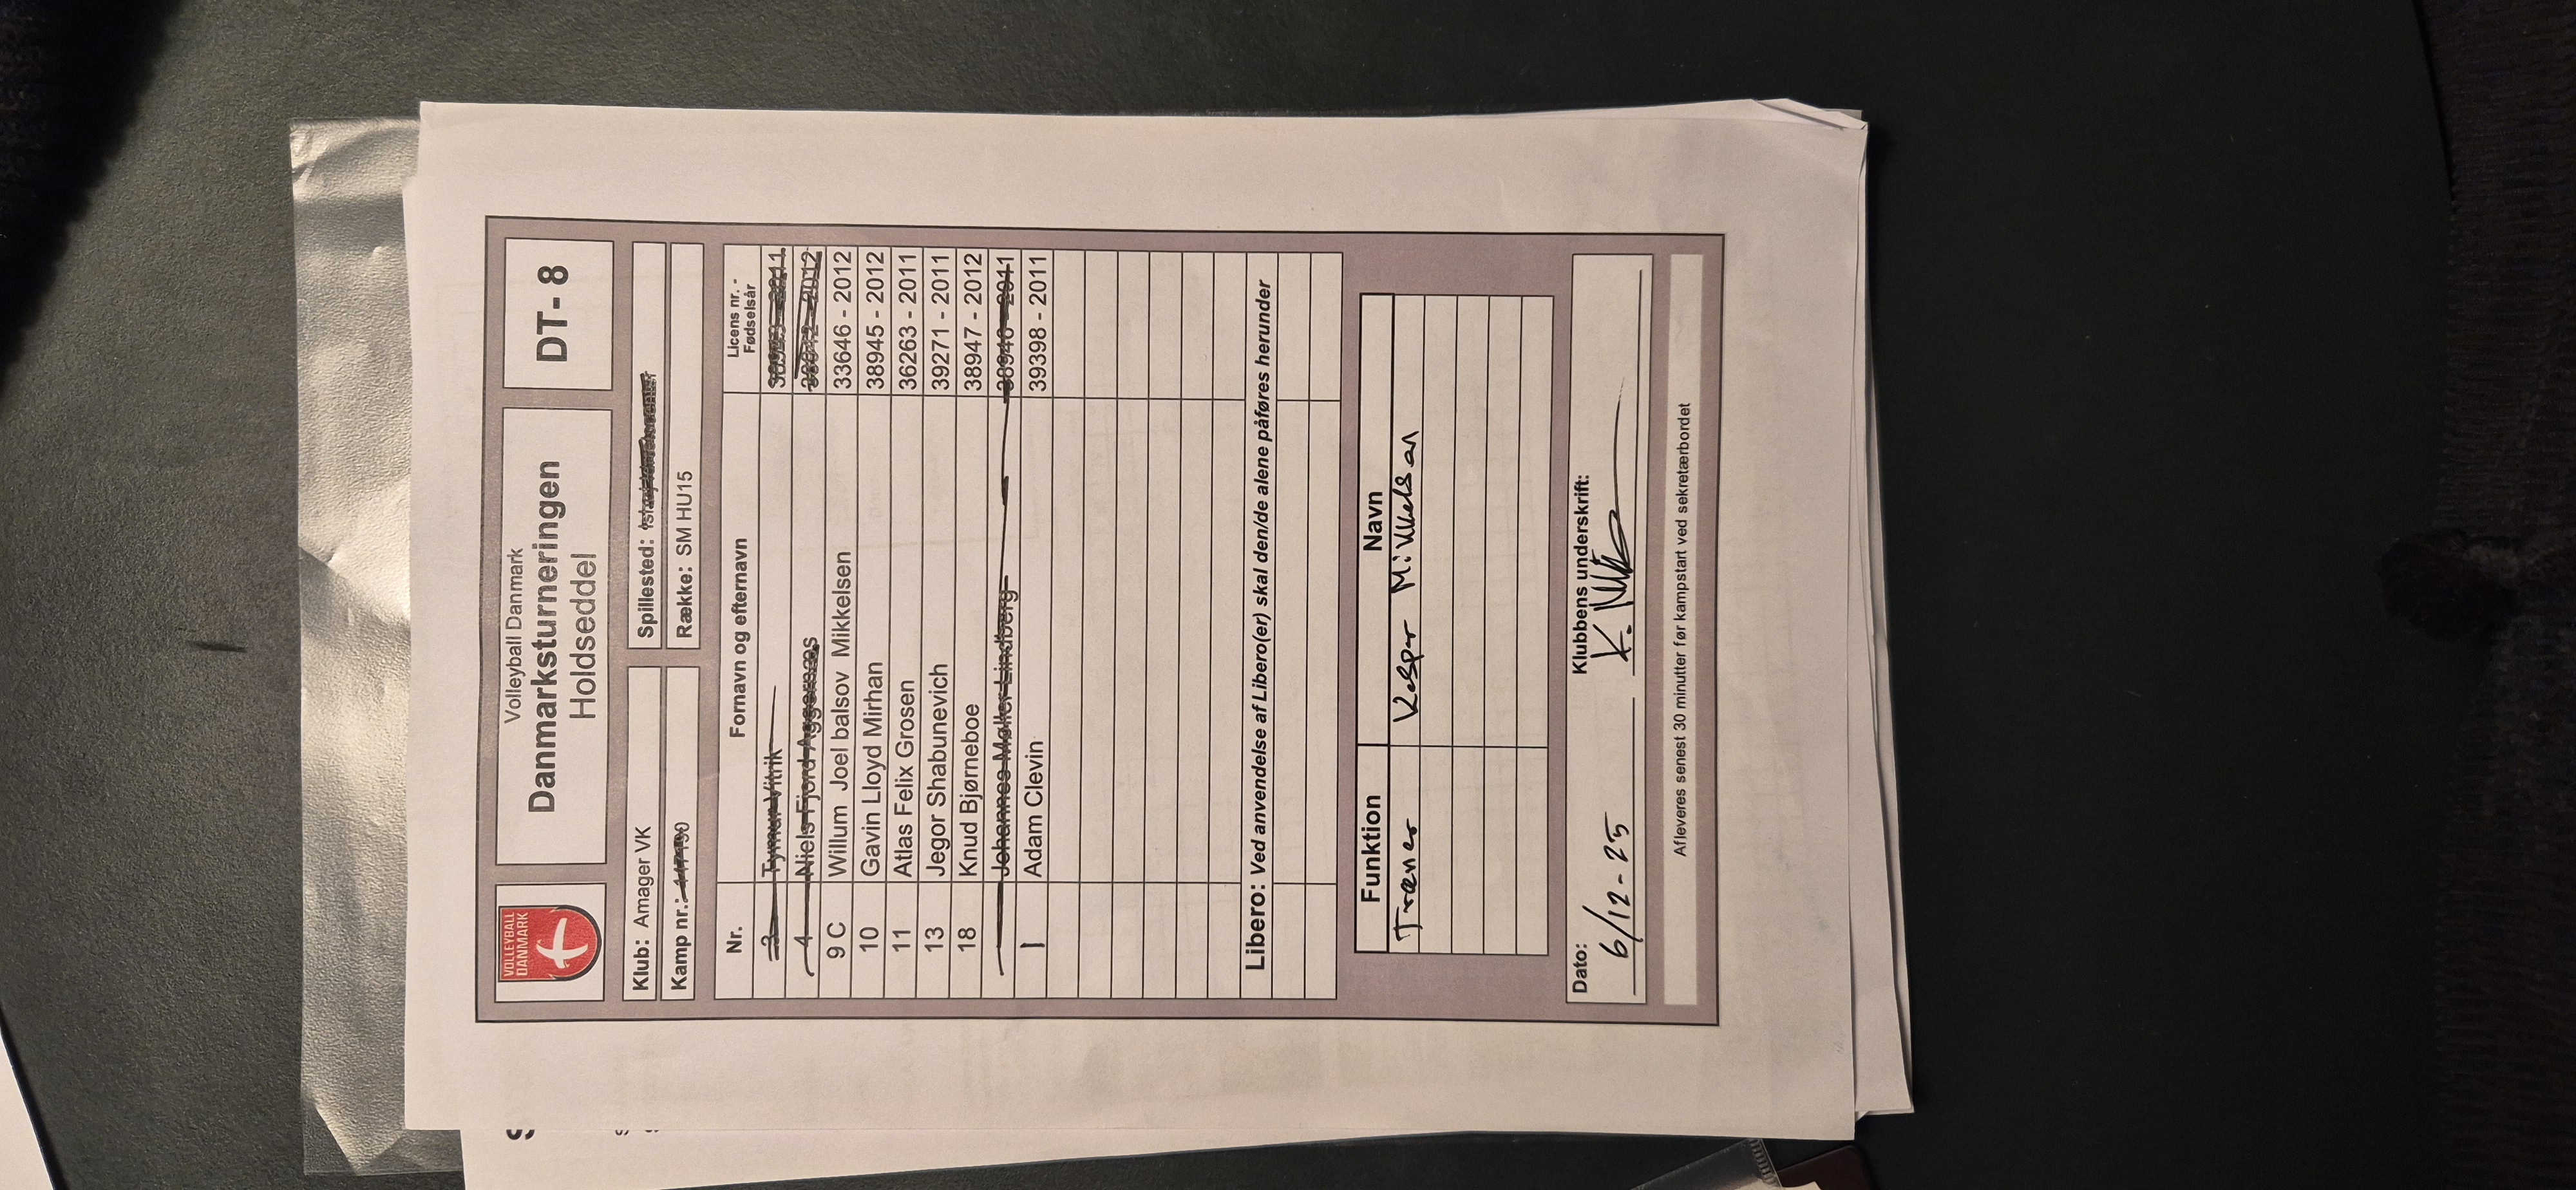 VOLLEYBALL
DANMARK
Volleyball Danmark
Danmarksturneringen
Holdseddel
DT- 8
Klub: Amager VK
Spillested:
Kamp nr.:
Række: SM HU15
Nr. Fornavn og efternavn Licens nr. - Fødselsår
3 Tymur Vitrik 2011
4 Niels Fjord Aggernæs 2012
9 C Willum Joel balsov Mikkelsen 33646 - 2012
10 Gavin Lloyd Mirhan 38945 - 2012
11 Atlas Felix Grosen 36263 - 2011
13 Jegor Shabunevich 39271 - 2011
18 Knud Bjørneboe 38947 - 2012
Johannes Møller Lindberg 38946 - 2011
1 Adam Clevin 39398 - 2011
Libero: Ved anvendelse af Libero(er) skal den/de alene påføres herunder
Funktion Navn
Træner Kasper Mikkelsen
Dato: Klubbens underskrift:
6/12-25
Afleveres senest 30 minutter før kampstart ved sekretærbordet